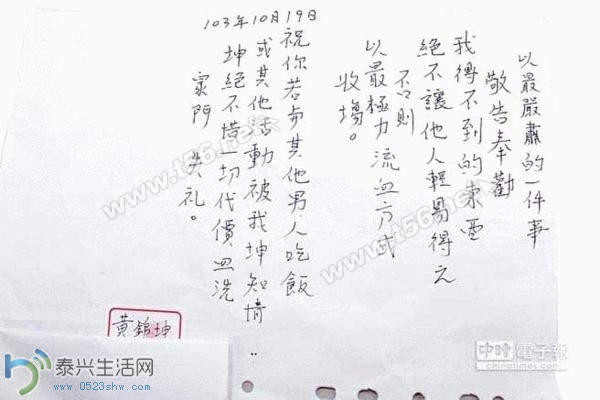 以最嚴肅的一件事
敬告奉勸
我得不到的東西
絕不讓他人輕易得之
否則
以最極力流血方式
收場。
103年10月19日
祝你若与其他男人吃飯
或其他活動被我坤知情..
坤絕不惜一切代價血洗
家門 失礼。
黃錦坤
www.t56.net
www.t56.net
www.t56.net
泰兴生活网
www.0523shw.com
中時電子報
chinatimes.com